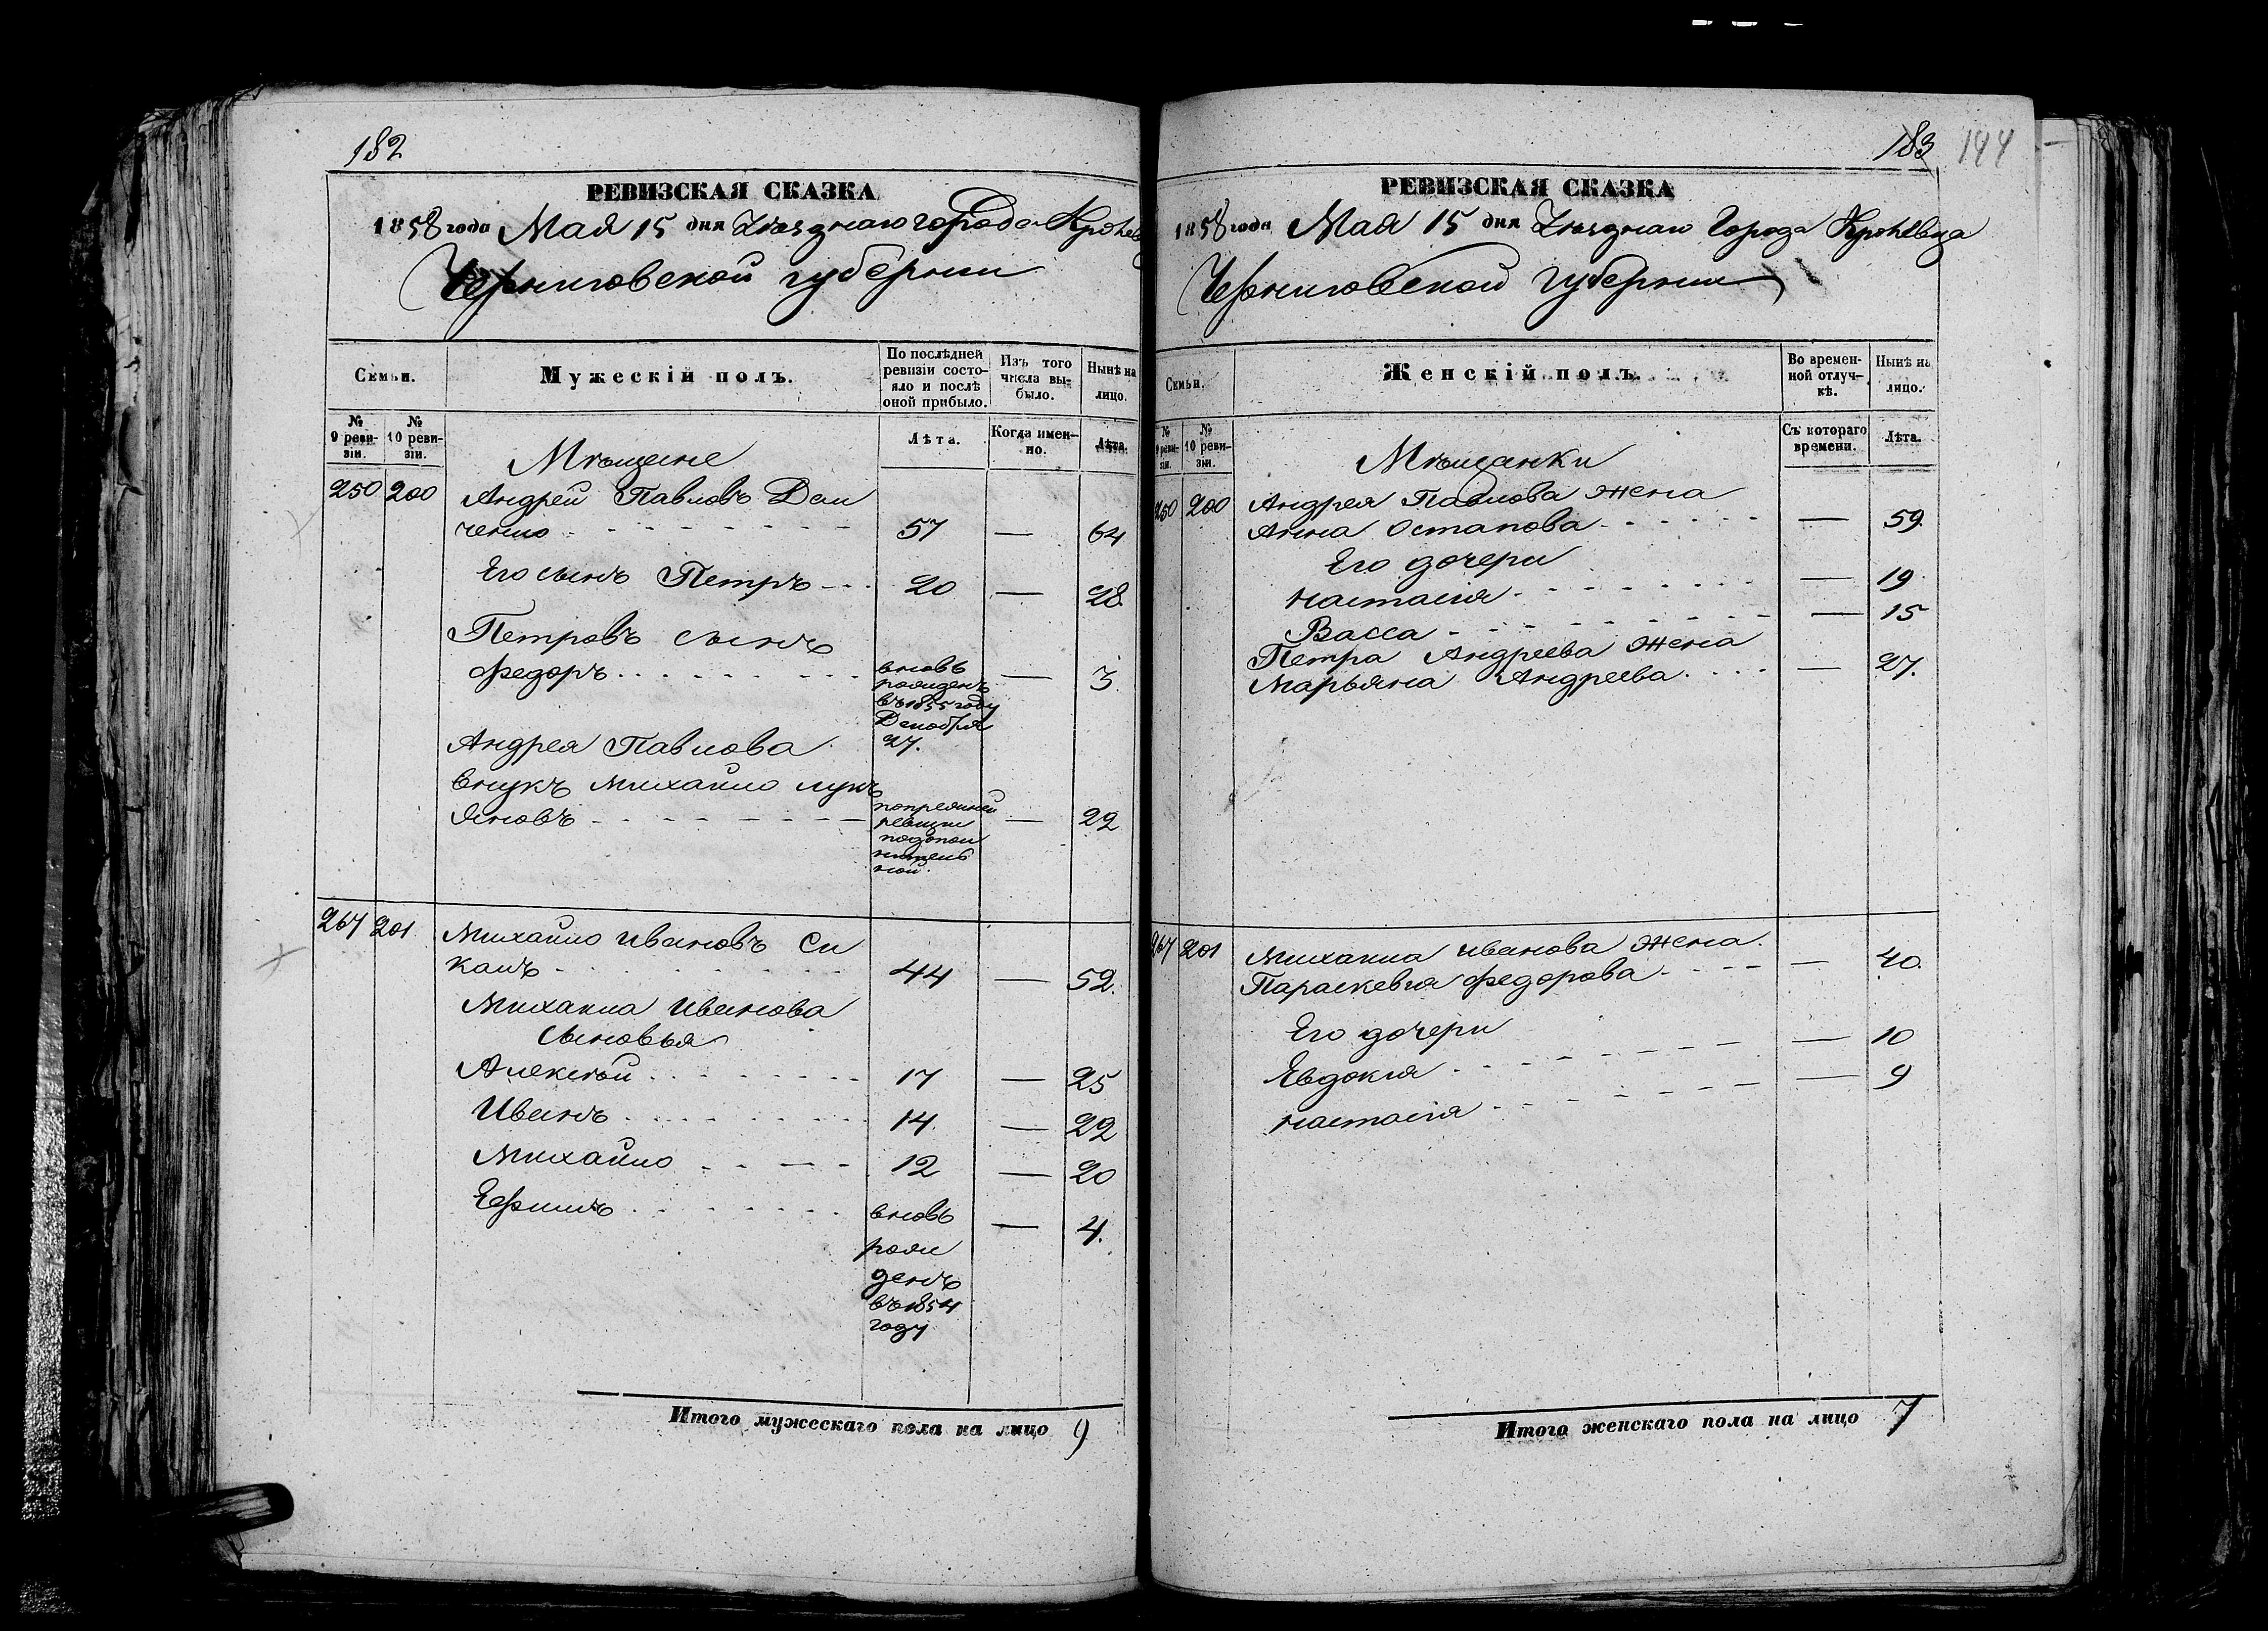 182
РЕВИЗСКАЯ СКАЗКА
1858 года Мая 15 дня Уѣзднаго города Кролев
Черниговской губернии
Семьи.
Мужескій полъ.
По послѣдней ревизіи состояло и послѣ оной прибыло.
Изъ того числа выбыло.
Нынѣ на лицо.
№ 9 ревизіи.
№ 10 ревизіи.
Лѣта.
Когда именно.
Лѣта.
Мѣщане
250 200 Андрей Павловъ Дем
ченко 57 — 64
Его сынъ Петръ 20 — 28.
Петровъ сынъ
Федоръ вновь рожденъ въ 1855 году Декабря 27. — 3.
Андрея Павлова
внукъ Михайло Лукь
яновъ по прежней ревизіи по дополнительной. — 22
267 201 Михайло Ивановъ Си
 44 — 52.
Михаила Иванова
Сыновья
Алексѣй 17 — 25
Иванъ 14. — 22
Михайло 12 — 20
Ефимъ вновь рожденъ въ 1854 году — 4.
Итого мужескаго пола на лицо 9
183 144
РЕВИЗСКАЯ СКАЗКА
1858 года Мая 15 дня Уѣзднаго Города Кролевца
Черниговской Губернии
Семьи.
Женскій полъ.
Во временной отлучкѣ.
Нынѣ на лицо.
№ 9 ревизіи.
№ 10 ревизіи.
Съ котораго времени.
Лѣта.
Мѣщанки
250 200 Андрея Павлова жена
Анна Остапова — 59.
Его дочери
Настасія — 19.
Васса — 15
Петра Андреева жена
Марьяна Андреева — 27.
267 201 Михаила Иванова жена
Параскевия Федорова — 40.
Его дочери
Евдокия — 10
Настасія — 9
Итого женскаго пола на лицо 7